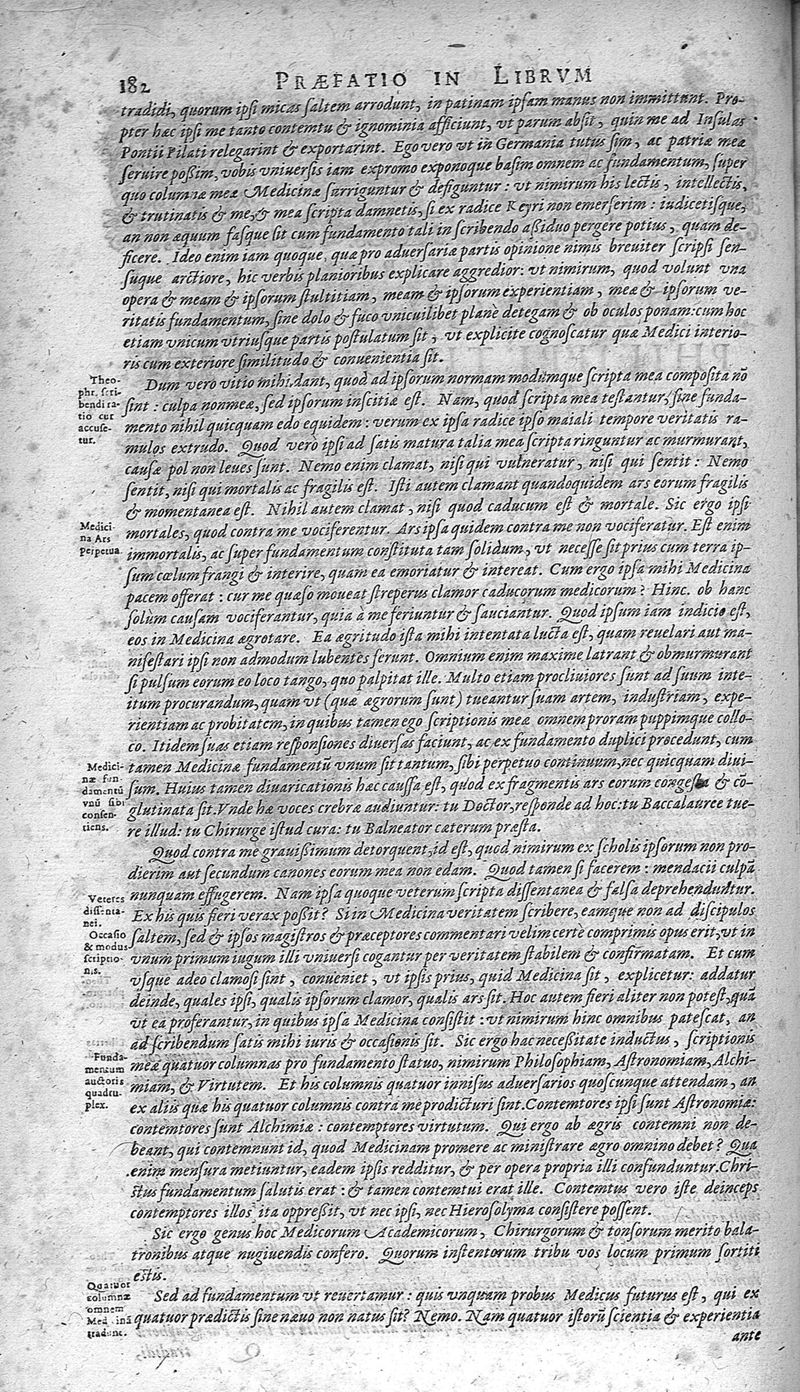 182 PRÆFATIO IN LIBRVM
tradidi, quorum ipsi micas saltem arrodunt, in patinam ipsam manus non immittunt. Pro-
pter hæc ipsi me tanto contemtu & ignominia afficiunt, vt parum absit, quin me ad Insulas
Pontii Pilati relegarint & exportarint. Ego vero vt in Germania tutus sim, ac patriæ meæ
seruire possim, vobis vniuersis iam expromo exponoque basim omnem ac fundamentum, super
quo columnæ meæ Medicinæ surriguntur & defiguntur: vt nimirum his lectis, intellectis,
& trutinatis & me, & mea scripta damnetis, si ex radice Keyri non emerserim: iudicetisque,
an non æquum fasque sit cum fundamento tali in scribendo assiduo pergere potius, quam de-
ficere. Ideo enim iam quoque, quæ pro aduersariæ partis opinione nimis breuiter scripsi sen-
suque arctiore, hic verbis planioribus explicare aggredior: vt nimirum, quod volunt vna
opera & meam & ipsorum stultitiam, meam & ipsorum experientiam, meæ & ipsorum ve-
ritatis fundamentum, sine dolo & fuco vnicuilibet planè detegam & ob oculos ponam: cum hoc
etiam vnicum vtriusque partis postulatum sit, vt explicite cognoscatur quæ Medici interio-
ris cum exteriore similitudo & conuenientia sit.
Theo-
phr. scri-
bendi ra-
tio cur
accuse-
tur.
Dum vero vitio mihi dant, quod ad ipsorum normam modumque scripta mea composita nõ
sint: culpa non meæ, sed ipsorum inscitiæ est. Nam, quod scripta mea testantur, sine funda-
mento nihil quicquam edo equidem: verum ex ipsa radice ipso maiali tempore veritatis ra-
mulos extrudo. Quod verò ipsi ad satis matura talia mea scripta ringuntur ac murmurant,
causæ pol non leues sunt. Nemo enim clamat, nisi qui vulneratur, nisi qui sentit: Nemo
sentit, nisi qui mortalis ac fragilis est. Isti autem clamant quandoquidem ars eorum fragilis
& momentanea est. Nihil autem clamat, nisi quod caducum est & mortale. Sic ergo ipsi
Medici-
na Ars
perpetua.
mortales, quod contra me vociferentur. Ars ipsa quidem contra me non vociferatur. Est enim
immortalis, ac super fundamentum constituta tam solidum, vt necesse sit prius cum terra ip-
sum cœlum frangi & interire, quam ea emoriatur & intereat. Cum ergo ipsa mihi Medicina
pacem offerat: cur me quæso moueat streperus clamor caducorum medicorum? Hinc ob hanc
solùm causam vociferantur, quia à me feriuntur & sauciantur. Quod ipsum iam indicio est,
eos in Medicina ægrotare. Ea ægritudo ista mihi intentata lucta est, quam reuelari aut ma-
nifestari ipsi non admodum lubentes ferunt. Omnium enim maxime latrant & obmurmurant
si pulsum eorum eo loco tango, quo palpitat ille. Multo etiam procliuiores sunt ad suum inte-
itum procurandum, quam vt (quæ ægrorum sunt) tueantur suam artem, industriam, expe-
rientiam ac probitatem, in quibus tamen ego scriptionis meæ omnem proram puppimque collo-
co. Itidem suas etiam responsiones diuersas faciunt, ac ex fundamento duplici procedunt, cum
Medici-
næ fun-
damentũ
vnũ sibi
consen-
tiens.
tamen Medicinæ fundamentũ vnum sit tantum, sibi perpetuo continuum, nec quicquam diui-
sum. Huius tamen diuaricationis hæc caussa est, quòd ex fragmentis ars eorum congesta & cõ-
glutinata sit. Vnde hæ voces crebræ audiuntur: tu Doctor, responde ad hoc: tu Baccalauree tue-
re illud: tu Chirurge istud cura: tu Balneator cæterum præsta.
Quod contra me grauissimum detorquent, id est, quod nimirum ex scholis ipsorum non pro-
dierim aut secundum canones eorum mea non edam. Quod tamen si facerem: mendacii culpã
nunquam effugerem. Nam ipsa quoque veterum scripta dissentanea & falsa deprehenduntur.
Veteres
dissenta-
nei.
Occasio
& modus
scriptio-
nis.
Ex his quis fieri verax possit? Si in Medicina veritatem scribere, eamque non ad discipulos
saltem, sed & ipsos magistros & præceptores commentari velim certè comprimis opus erit, vt in
vnum primum iugum illi vniuersi cogantur per veritatem stabilem & confirmatam. Et cum
vsque adeo clamosi sint, conueniet, vt ipsis prius, quid Medicina sit, explicetur: addatur
deinde, quales ipsi, qualis ipsorum clamor, qualis ars sit. Hoc autem fieri aliter non potest, quã
vt ea proferantur, in quibus ipsa Medicina consistit: vt nimirum hinc omnibus patescat, an
ad scribendum satis mihi iuris & occasionis sit. Sic ergo hac necessitate inductus, scriptionis
Funda-
mentum
auctoris
quadru-
plex.
meæ quatuor columnas pro fundamento statuo, nimirum Philosophiam, Astronomiam, Alchi-
miam, & Virtutem. Et his columnis quatuor innisus aduersarios quoscunque attendam, an
ex aliis quæ his quatuor columnis contra me prodicturi sint. Contemtores ipsi sunt Astronomiæ:
contemtores sunt Alchimiæ: contemptores virtutum. Qui ergo ab ægris contemni non de-
beant, qui contemnunt id, quod Medicinam promere ac ministrare ægro omnino debet? Qua
enim mensura metiuntur, eadem ipsis redditur, & per opera propria illi confunduntur. Chri-
stus fundamentum salutis erat: & tamen contemtui erat ille. Contemtus vero iste deinceps
contemptores illos ita oppressit, vt nec ipsi, nec Hierosolyma consistere possent.
Sic ergo genus hoc Medicorum Academicorum, Chirurgorum & tonsorum merito bala-
tronibus atque nugiuendis confero. Quorum instentorum tribu vos locum primum sortiti
estis.
Quatuor
columnæ
omnem
Medicinã
tradunt.
Sed ad fundamentum vt reuertamur: quis vnquam probus Medicus futurus est, qui ex
quatuor prædictis sine næuo non natus sit? Nemo. Nam quatuor istorũ scientia & experientia
ante